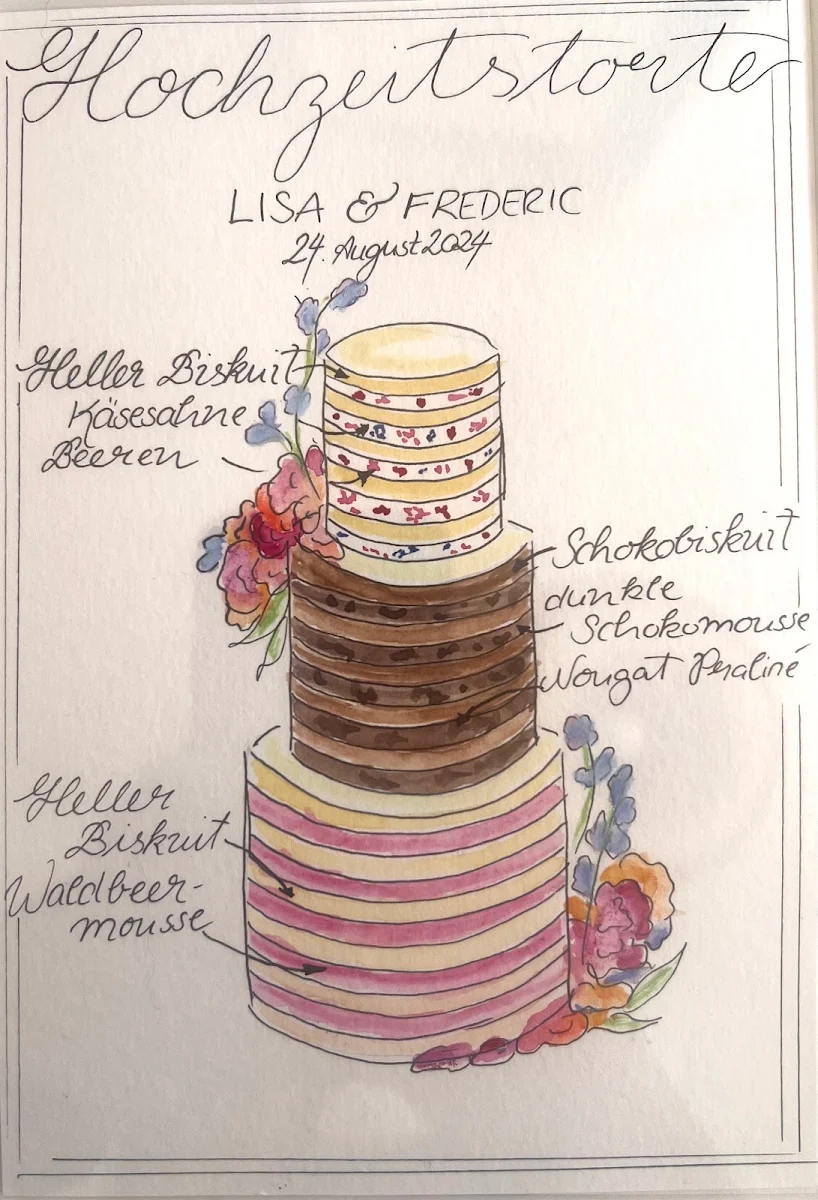 Hochzeitstorte
LISA & FREDERIC
24. August 2024
Heller Biskuit
Käsesahne
Beeren
Schokobiskuit
dunkle
Schokomousse
Nougat Praliné
Heller
Biskuit
Waldbeer-
mousse